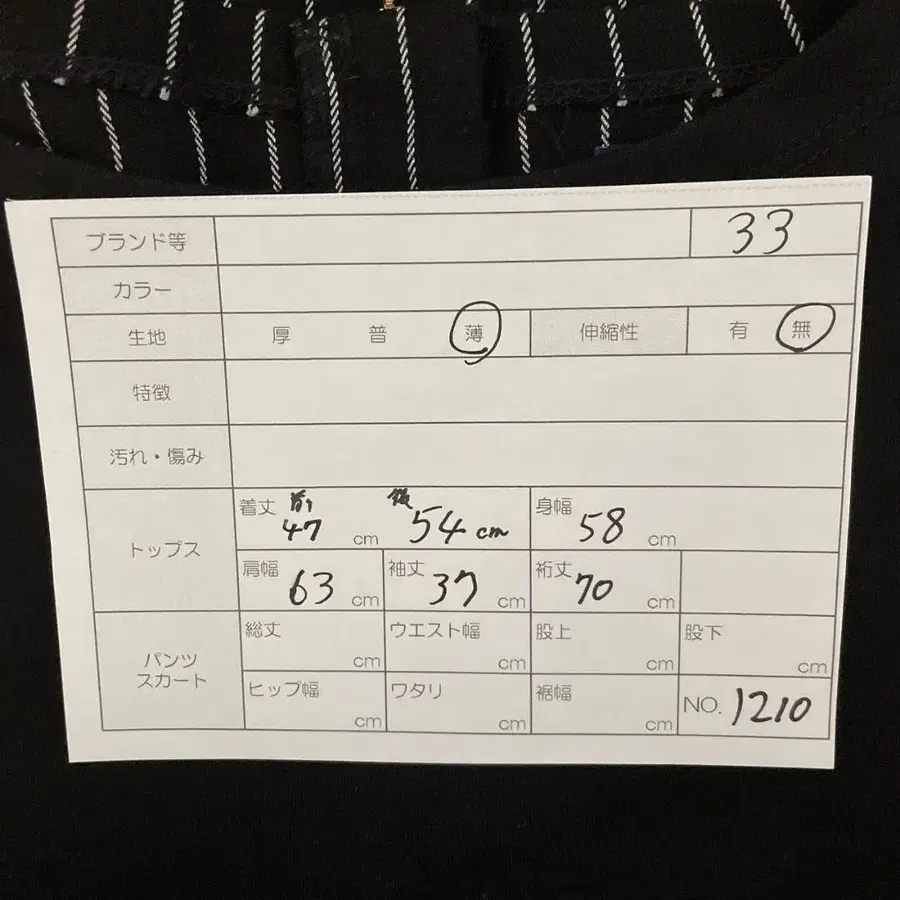 ブランド等 33
カラー
生地 厚 普 薄 伸縮性 有 無
特徴
汚れ・傷み
トップス
着丈 前 47 cm 後 54 cm 身幅 58 cm
肩幅 63 cm 袖丈 37 cm 裄丈 70 cm
パンツ
スカート
総丈 cm ウエスト幅 cm 股上 cm 股下 cm
ヒップ幅 cm ワタリ cm 裾幅 cm NO. 1210